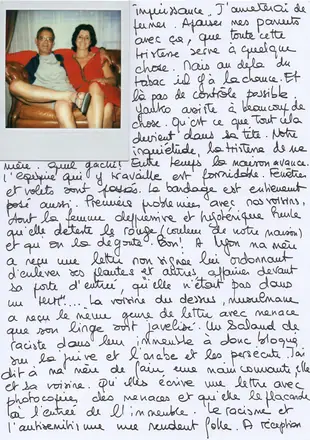 impuissance. J'arrêterai de
fumer. Apaiser mes parents
avec ça, que toute cette
tristesse serve à quelque
chose. Mais au delà du
tabac il y a la chance. Et
là pas de contrôle possible
assiste à beaucoup de
chose. Qu'est ce que tout cela
devient dans sa tête. Notre
inquiétude, la tristesse de ma
mère. Quel gachis! Entre temps la maison avance.
l'équipe qui y travaille est formidable. Fenêtres
et volets sont posés. Le bardage est entièrement
posé aussi. Premiers problèmes avec nos voisins,
dont la femme dépressive et hystérique hurle
qu'elle déteste le rouge (couleur de notre maison)
et qu'on la dégoute. Bon! A Lyon ma mère
a reçu une lettre non signée lui ordonnant
d'enlever ses plantes et autres affaires devant
sa porte d'entrée, qu'elle n'était pas dans
un ".... La voisine du dessus, musulmane
a reçu le même genre de lettre avec menace
que son linge soit javelisé. Un salaud de
raciste dans leur immeuble a donc bloqué
sur la juive et l'arabe et les persécute. J'ai
dit à ma mère de faire une main courante, elle
et sa voisine. Qu'elles écrive une lettre avec
photocopies des menaces et qu'elle le placarde
à l'entrée de l'immeuble. Le racisme et
l'antisémitisme me rendent folle. A réception